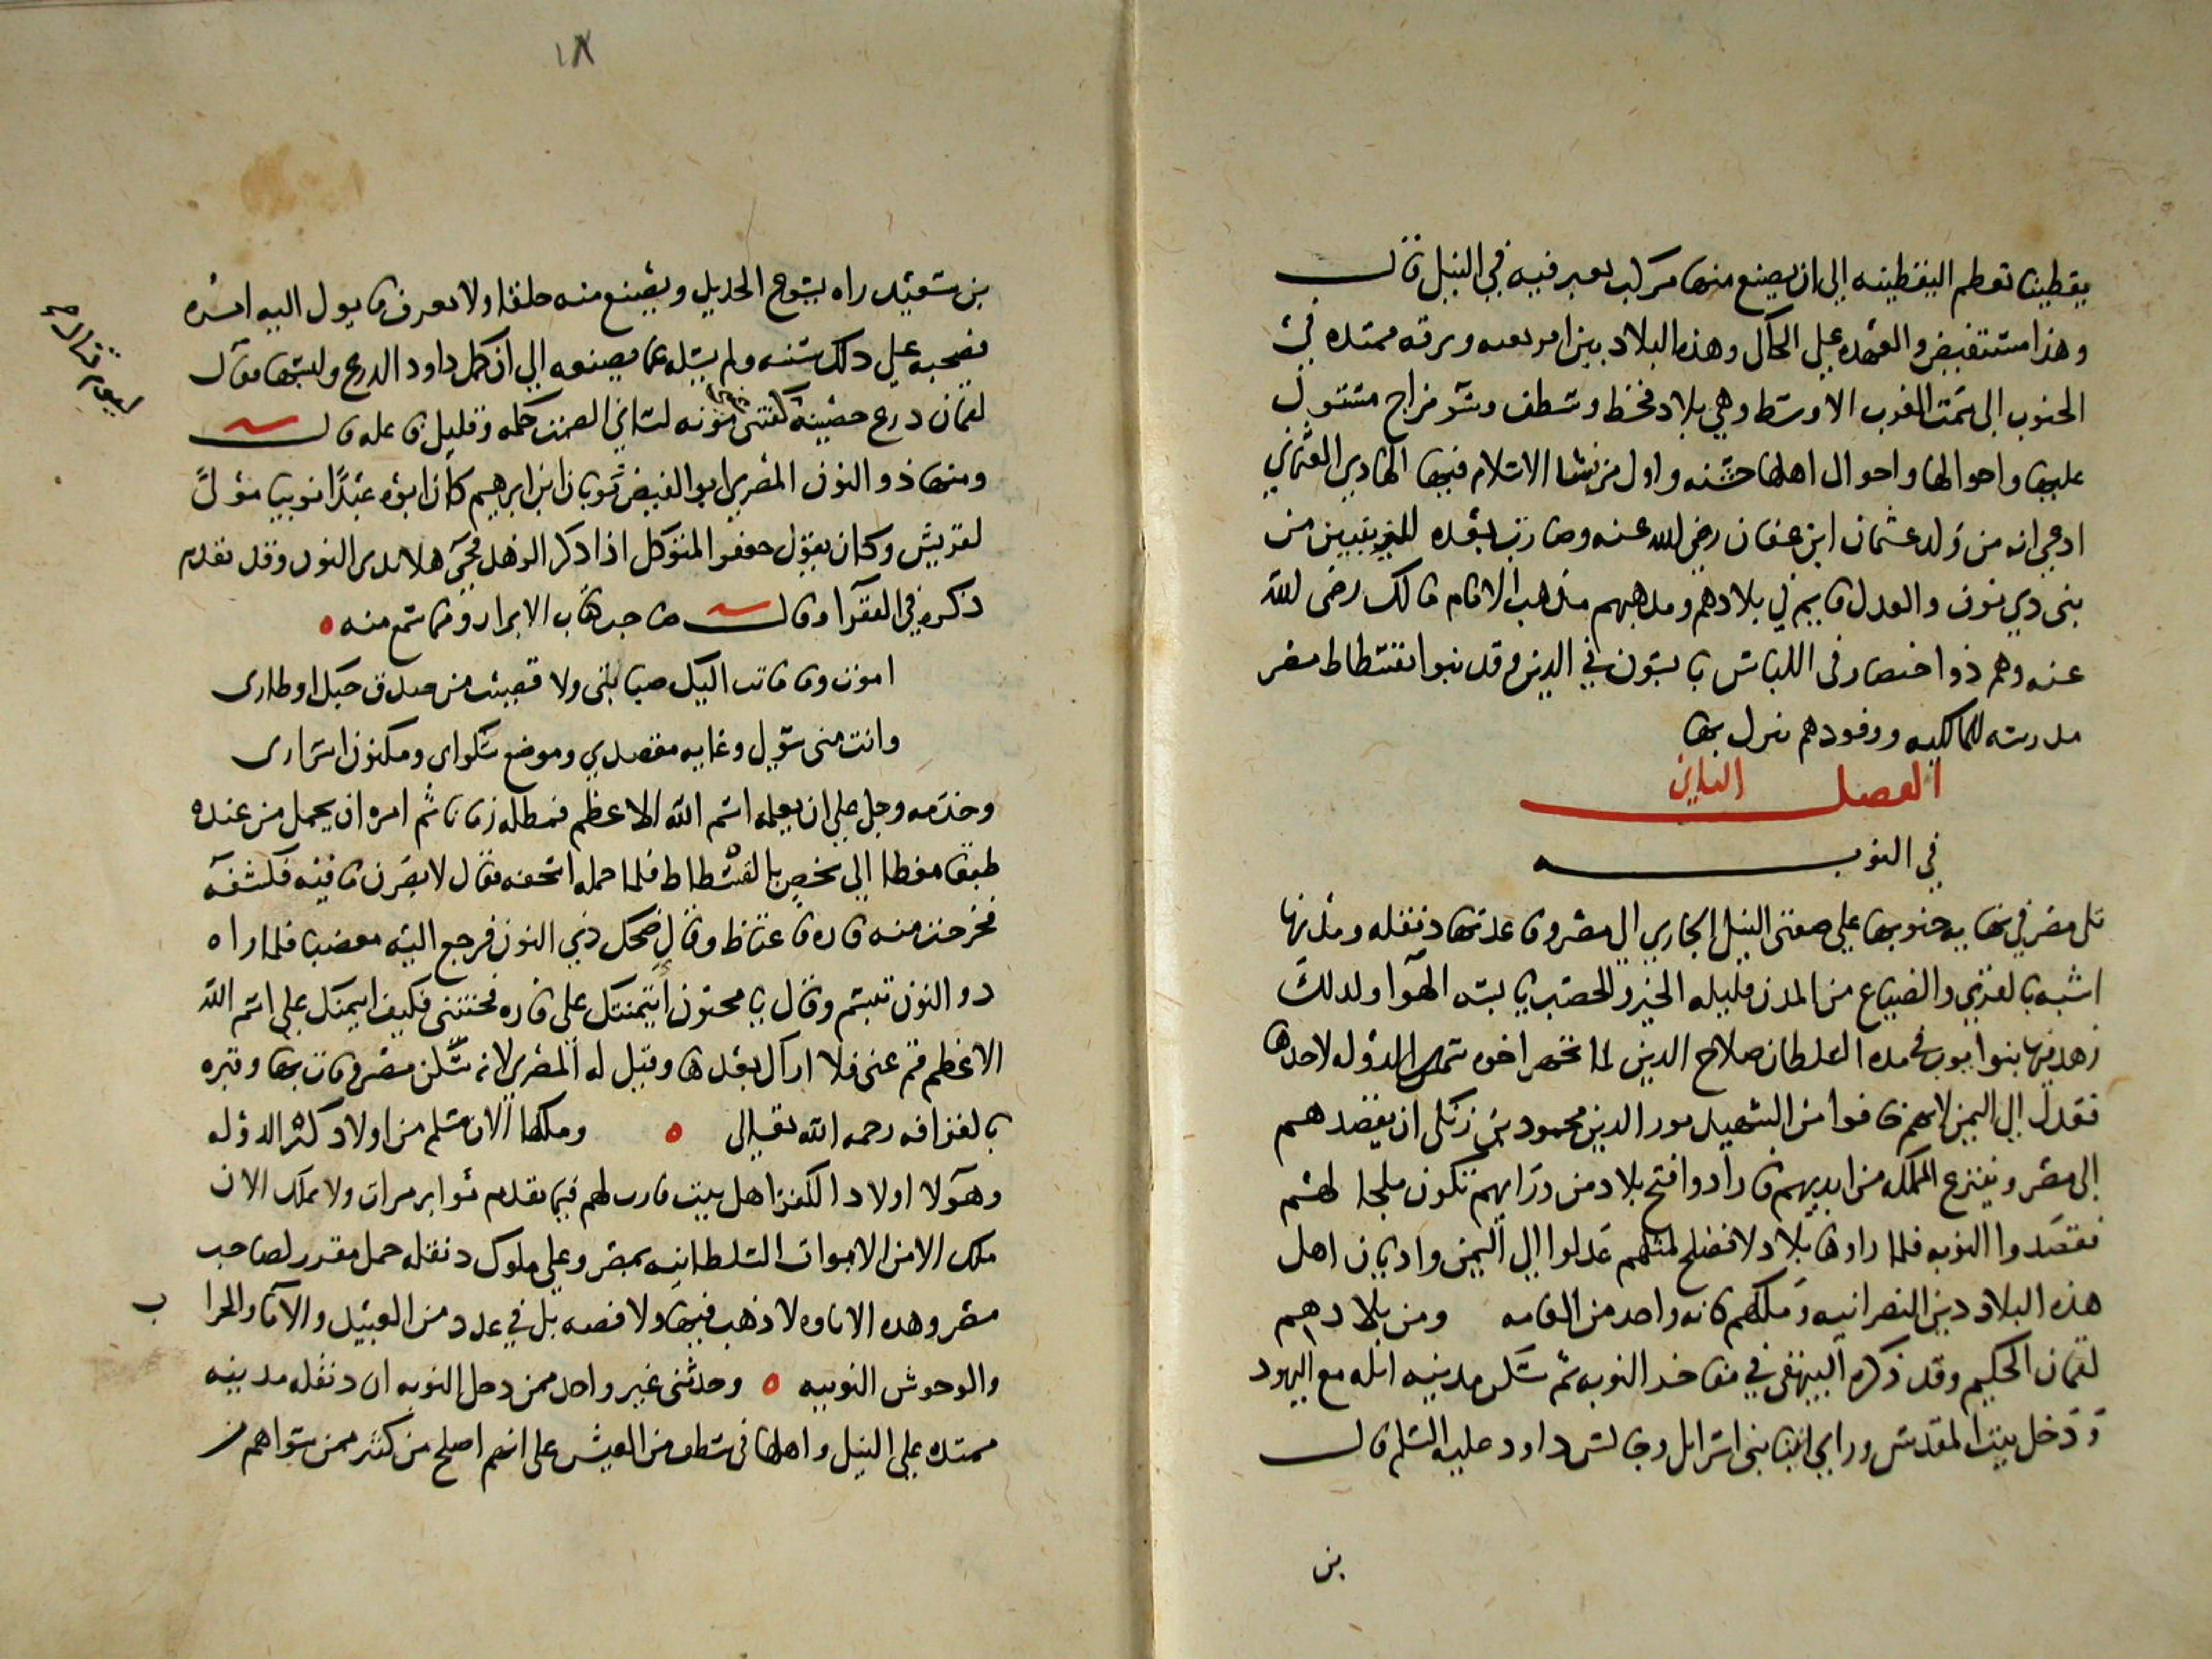 يقطينا تعظم اليقطينه الى ان يصنع منها مركب يعبر فيه في النيل قال
وهذا مستفيض والعهده على الحاكي وهذه البلاد بين افريقيه وبرقه ممتده في
الجنوب الى سمت الغرب الاوسط وهي بلاد قحط وشظف وسو مزاج مستول
عليها واحوالها واحوال اهلها خشنه واول من بث الاسلام فيها الهادي العثماني
ادعى انه من ولد عثمان ابن عفان رضي الله عنه وصارت بعده لليزنيين من
بني ذي يزن والعدل قايم في بلادهم ومذهبهم مذهب الامام مالك رضى الله
عنه وهم ذوا اختصار فى اللباس يابسون في الدين وقد بنوا بفسطاط مصر
مدرسه للمالكيه ووفودهم تنزل بها
الفصل الثاني
في النوبه
تلى مصر في نهايه جنوبها على ضفتى النيل الجاري الى مصر وقاعدتها دنقله ومدنها
اشبه بالقرى والضياع من المدن قليله الخير والخصب يابسه الهوا ولذلك
زهد فيها بنوا ايوب في مده السلطان صلاح الدين لما تجهز اخوه شمس الدوله لاحدها
فعدل الى اليمن لانهم خافوا من الشهيد نور الدين محمود بن زنكى ان يقصدهم
الى مصر وينتزع الملك من ايديهم فارادوا فتح بلاد من ورايهم تكون ملجا لهم
فقصدوا النوبه فلما راوها بلاد لا تصلح لمثلهم عدلوا الى اليمن واديان اهل
هذه البلاد دين النصرانيه وملكهم كانه واحد من العامه ومن بلادهم
لقمان الحكيم وقد ذكره البيهقى في مفاخر النوبه ثم سكن مدينه ايله مع اليهود
ودخل بيت المقدس وراى انبيا بنى اسرايل وجالس داود عليه السلم قال
بن
١٨
بن سعيد راه يسوي الحديد ويصنع منه حلقا ولا يعرف ما يول اليه امره
فصحبه على ذلك سنه ولم يسله عما يصنعه الى ان كمل داود الدرع ولبسها فقال
لقمان درع حصينة كفتنى مؤنه لساني الصمت حكمه وقليل فاعله قال
ومنها ذو النون المصري ابو الفيض ثوبان ابن ابراهيم كان ابوه عبدًا نوبيا مولى
لقريش وكان يقول جعفر المتوكل اذا ذكر الزهد فحي هلا بذى النون وقد تقدم
ذكره في الفقرآ وقال صاحب مناقب الابرار ومما سمع منه
اموت وما ماتت اليك صبابتى ولا قضيت من صدق حبك اوطارى
وانت منى سولي وغايه مقصدي وموضع شكواى ومكنون اسرارى
وخدمه رجل على ان يعلمه اسم الله الاعظم فمطله زمانا ثم امره ان يحمل من عنده
طبقا مغطا الى شخص بالفسطاط فلما حمله استخفه فقال لابصرن ما فيه فكشفه
فخرجت منه فاره فاغتاظ وقال ضحك ذي النون فرجع اليه مغضبا فلما راه
ذو النون تبسم وقال يا مجنون ائتمنتك على فاره فخنتنى فكيف ايتمنك على اسم الله
الاعظم قم عنى فلا اراك بعدها وقيل له المصري لانه سكن مصر ومات بها وقبره
بالقرافه رحمه الله تعالى وملكها الان مسلم من اولاد كنز الدوله
وهولا اولاد الكنز اهل بيت ثارت لهم فيما تقدم ثوابر مرات ولا يملك الان
ملك الا من الابواب السلطانيه بمصر وعلى ملوك دنقله حمل مقرر لصاحب
مصر وهذه الاتاوه لا ذهب فيها ولا فضه بل في عدد من العبيد والامآ والحرا
ب
والوحوش النوبيه وحدثنى غير واحد ممن دخل النوبه ان دنقله مدينه
ممتده على النيل واهلها فى شظف من العيش على انهم اصلح من كثير ممن سواهم من